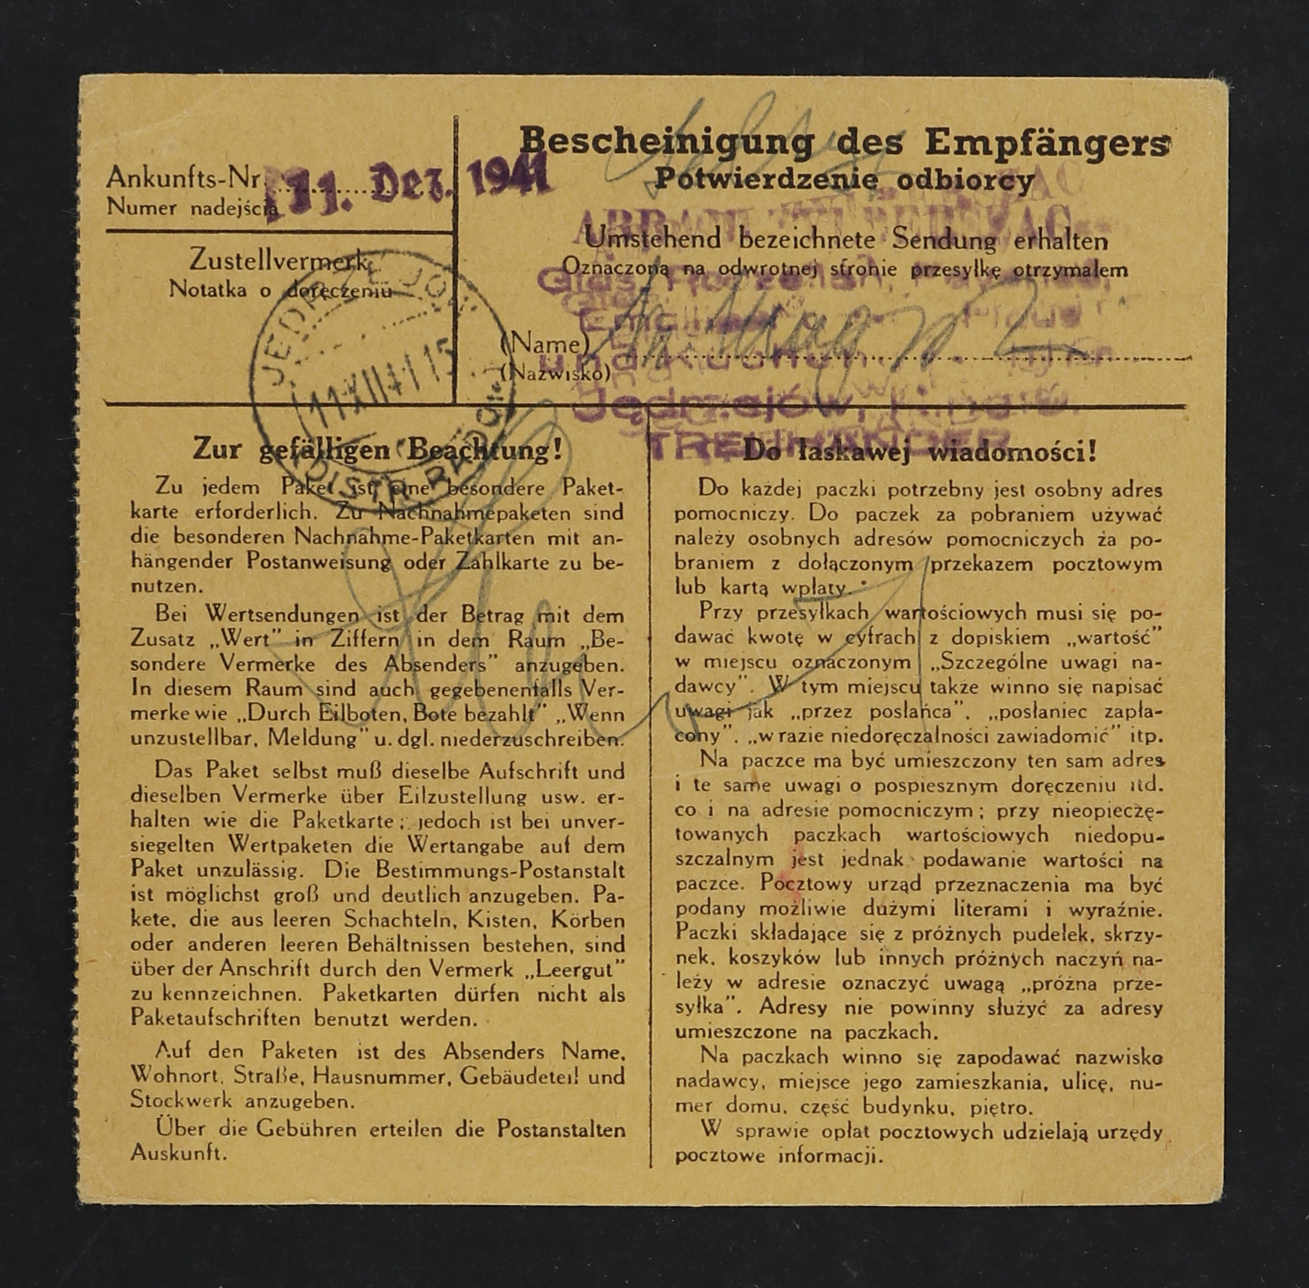 Ankunfts-Nr. 11. Dez. 1941
Numer nadejścia
Zustellvermerk
Notatka o doręczeniu
Bescheinigung des Empfängers
Potwierdzenie odbiorcy
Umstehend bezeichnete Sendung erhalten
Oznaczoną na odwrotnej stronie przesyłkę otrzymałem
(Name)
(Nazwisko)
Glas, Porzellan,
Emaille
und Küchen
Jędrzejów,
TREUHÄNDER
Zur gefälligen Beachtung!
Zu jedem Paket ist eine besondere Paket-
karte erforderlich. Zu Nachnahmepaketen sind
die besonderen Nachnahme-Paketkarten mit an-
hängender Postanweisung oder Zahlkarte zu be-
nutzen.
Bei Wertsendungen ist der Betrag mit dem
Zusatz „Wert” in Ziffern in dem Raum „Be-
sondere Vermerke des Absenders” anzugeben.
In diesem Raum sind auch gegebenenfalls Ver-
merke wie „Durch Eilboten, Bote bezahlt” „Wenn
unzustellbar, Meldung” u. dgl. niederzuschreiben.
Das Paket selbst muß dieselbe Aufschrift und
dieselben Vermerke über Eilzustellung usw. er-
halten wie die Paketkarte; jedoch ist bei unver-
siegelten Wertpaketen die Wertangabe auf dem
Paket unzulässig. Die Bestimmungs-Postanstalt
ist möglichst groß und deutlich anzugeben. Pa-
kete, die aus leeren Schachteln, Kisten, Körben
oder anderen leeren Behältnissen bestehen, sind
über der Anschrift durch den Vermerk „Leergut”
zu kennzeichnen. Paketkarten dürfen nicht als
Paketaufschriften benutzt werden.
Auf den Paketen ist des Absenders Name,
Wohnort, Straße, Hausnummer, Gebäudeteil und
Stockwerk anzugeben.
Über die Gebühren erteilen die Postanstalten
Auskunft.
Do łaskawej wiadomości!
Do każdej paczki potrzebny jest osobny adres
pomocniczy. Do paczek za pobraniem używać
należy osobnych adresów pomocniczych za po-
braniem z dołączonym przekazem pocztowym
lub kartą wpłaty.
Przy przesyłkach wartościowych musi się po-
dawać kwotę w cyfrach z dopiskiem „wartość”
w miejscu oznaczonym „Szczególne uwagi na-
dawcy”. W tym miejscu także winno się napisać
uwagi jak „przez posłańca”, „posłaniec zapła-
cony”, „w razie niedoręczalności zawiadomić” itp.
Na paczce ma być umieszczony ten sam adres
i te same uwagi o pospiesznym doręczeniu itd.
co i na adresie pomocniczym; przy nieopieczę-
towanych paczkach wartościowych niedopu-
szczalnym jest jednak podawanie wartości na
paczce. Pocztowy urząd przeznaczenia ma być
podany możliwie dużymi literami i wyraźnie.
Paczki składające się z próżnych pudełek, skrzy-
nek, koszyków lub innych próżnych naczyń na-
leży w adresie oznaczyć uwagą „próżna prze-
syłka”. Adresy nie powinny służyć za adresy
umieszczone na paczkach.
Na paczkach winno się zapodawać nazwisko
nadawcy, miejsce jego zamieszkania, ulicę, nu-
mer domu, część budynku, piętro.
W sprawie opłat pocztowych udzielają urzędy
pocztowe informacji.